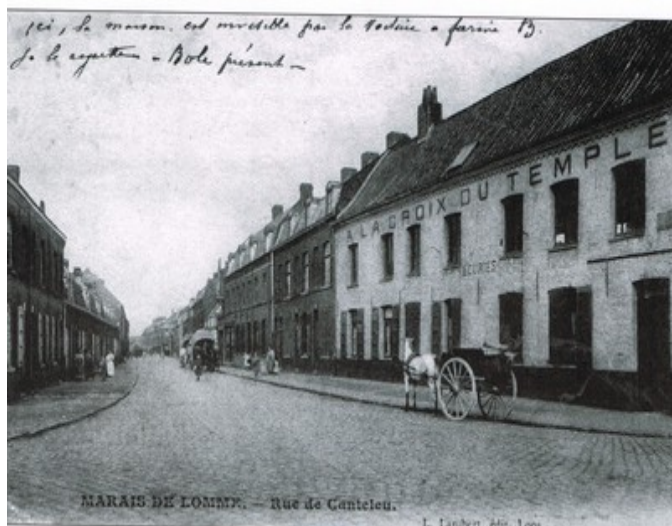 ici, la maison est invisible par la voiture a farine B.
Je le regrette - Bole présent -
A LA CROIX DU TEMPLE
ECURIES
MARAIS DE LOMME. - Rue de Canteleu.
L. Lambert, édit.